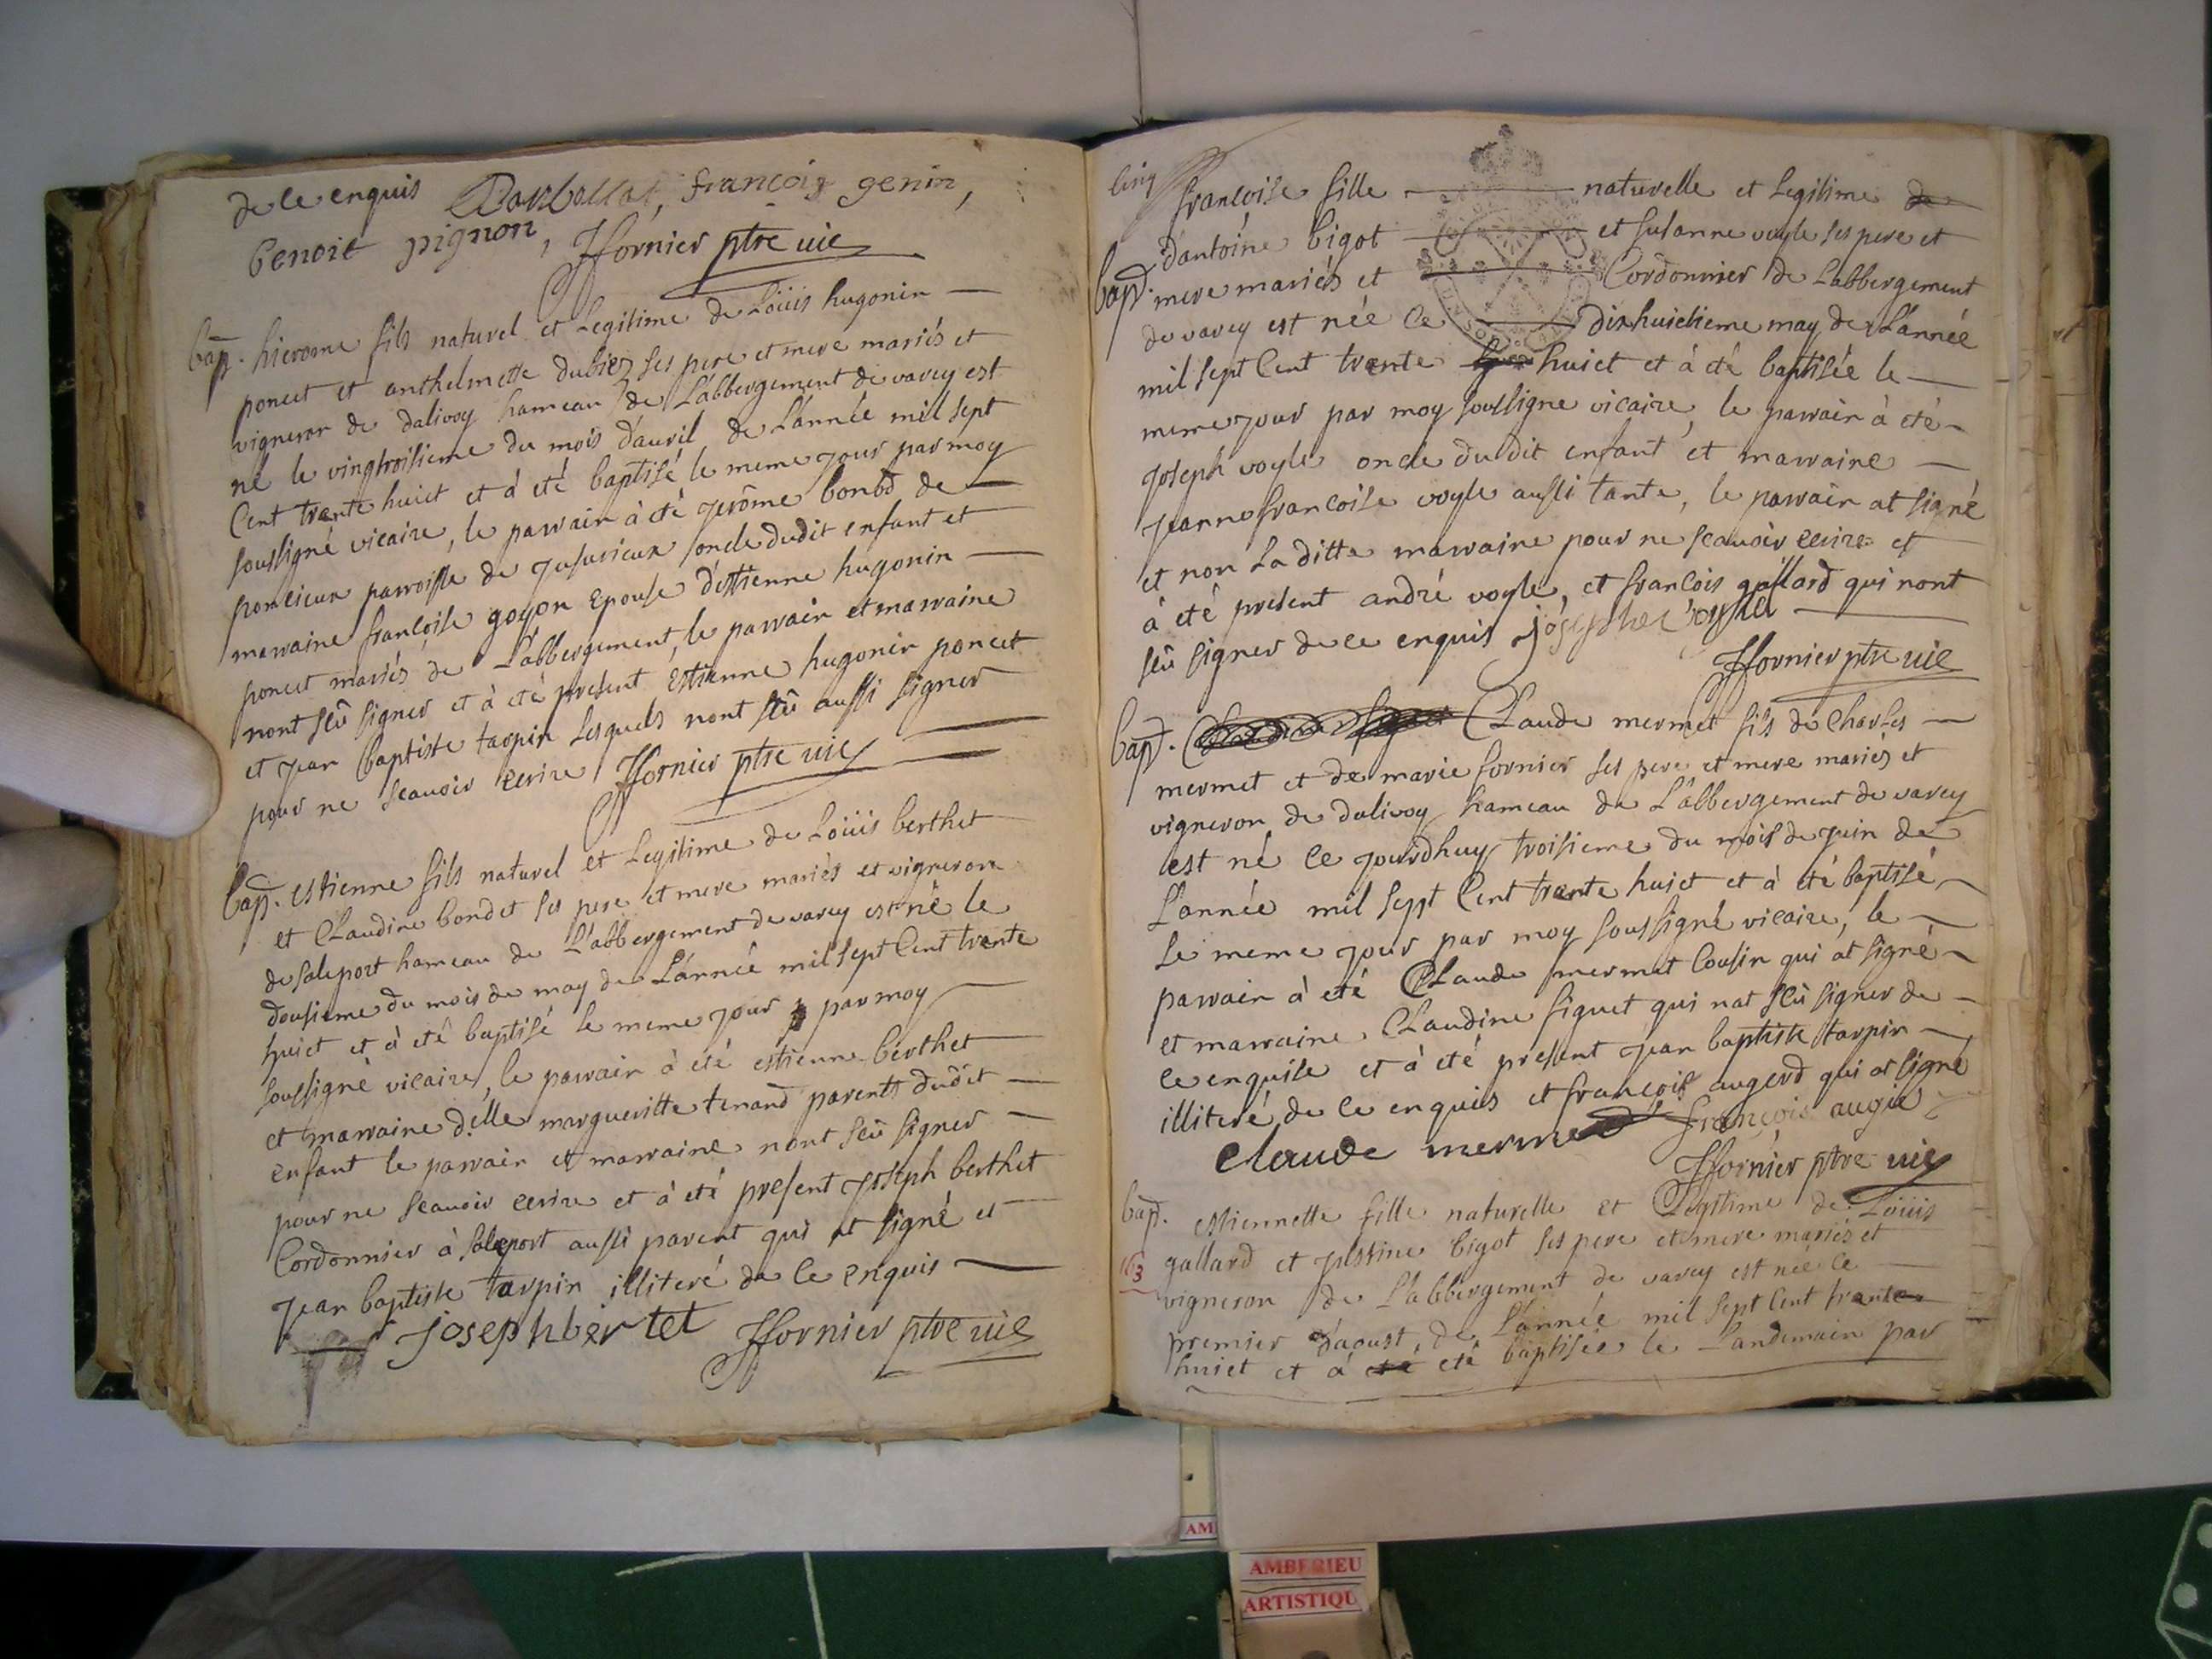 de ce enquis Barballat, françois genin,
benoit pignon, Jfornier ptre vic
bap. hierome fils naturel et Legitime de Loüis hugonin
poncet et anthelmette dubiez ses pere et mere mariés et
vigneron de dalivoy hameau de L'abbergement de varey est
né le vingtroisieme du mois d'auril de L'année mil sept
Cent trante huict et à été baptisé le meme jour par moy
soussigné vicaire, le parrain à été jerôme bonbd de
poncieux parroisse de jujurieux oncle dudit enfant et
marraine françoise goyon epouse d'estienne hugonin
poncet mariés de L'abbergement, le parrain et marraine
nont sçû signer et à été present Estienne hugonin poncet
et jean baptiste tarpin lesquels nont sçû aussi signer
pour ne scauoir ecrire Jfornier ptre vic
bap. estienne fils naturel et Legitime de Loüis berthet
et Claudine bondet ses pere et mere mariés et vigneron
de saleport hameau de L'abbergement de varey est né le
dousieme du mois de may de L'année mil sept Cent trante
huict et à été baptisé le meme jour par moy
soussigné vicaire, le parrain à été estienne berthet
et marraine d.elle margueritte tenand parents dudit
enfant le parrain et marraine nont sçû signer
pour ne scauoir ecrire et à été present joseph berthet
Cordonnier à saleport aussi parent qui at signé et
jean baptiste tarpin illiteré de ce enquis
joseph bertet Jfornier ptre vic
Cinq
françoise fille naturelle et Legitime de
d'antoine bigot et susanne voyle ses pere et
bap. mere mariés et Cordonnier de Labbergement
de varey est née le dixhuictieme may de L'année
mil sept Cent trante huict et à été baptisée le
meme jour par moy soussigné vicaire, le parrain à été
joseph voyle oncle du dit enfant et marraine
jeanne françoise voyle aussi tante, le parrain at signé
et non La ditte marraine pour ne scauoir ecrire et
à été present andré voyle, et françois gallard qui nont
sçû signer de ce enquis josephe voyle
Jfornier ptre vic
bap. Claude mermet fils de Charles
mermet et de marie fornier ses pere et mere mariés et
vigneron de dalivoy hameau de L'abbergement de varey
est né ce jourdhuy troisieme du mois de juin de
L'année mil sept Cent trante huict et à été baptisé
le meme jour par moy soussigné vicaire, le
parrain à été Claude mermet Cousin qui at signé
et marraine Claudine figuet qui nat sçû signer de
ce enquise et à été present jean baptiste tarpin
illiteré de ce enquis et françois augerd qui at signé
Claude mermet françois augié
Jfornier ptre vic
bap. estiennette fille naturelle et Legitime de Loüis
gallard et justine bigot ses pere et mere mariés et
163
vigneron de L'abbergement de varey est née le
premier d'aoust de L'année mil sept Cent trante
huict et à été baptisée le Landemain par
AM
AMBERIEU
ARTISTIQU